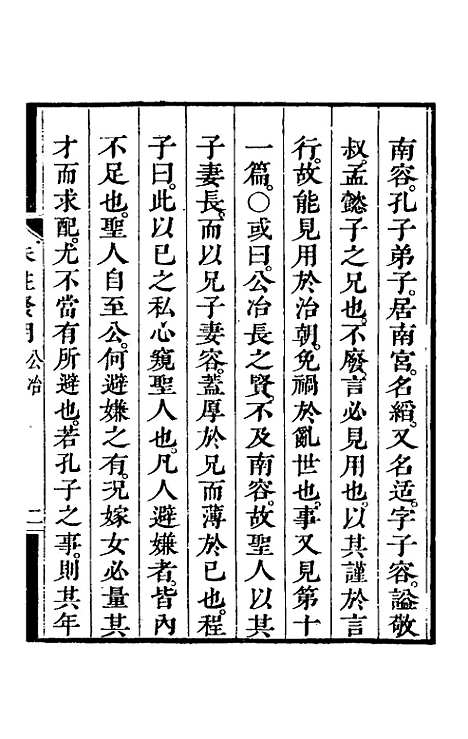 南容。孔子弟子。居南宮。名縚。又名适。字子容。謚敬
叔。孟懿子之兄也。不廢。言必見用也。以其謹於言
行。故能見用於治朝。免禍於亂世也。事又見第十
一篇。○或曰。公冶長之賢。不及南容。故聖人以其
子妻長。而以兄子妻容。蓋厚於兄而薄於己也。程
子曰。此以己之私心窺聖人也。凡人避嫌者。皆內
不足也。聖人自至公。何避嫌之有。况嫁女必量其
才而求配。尤不當有所避也。若孔子之事。則其年
公冶
二